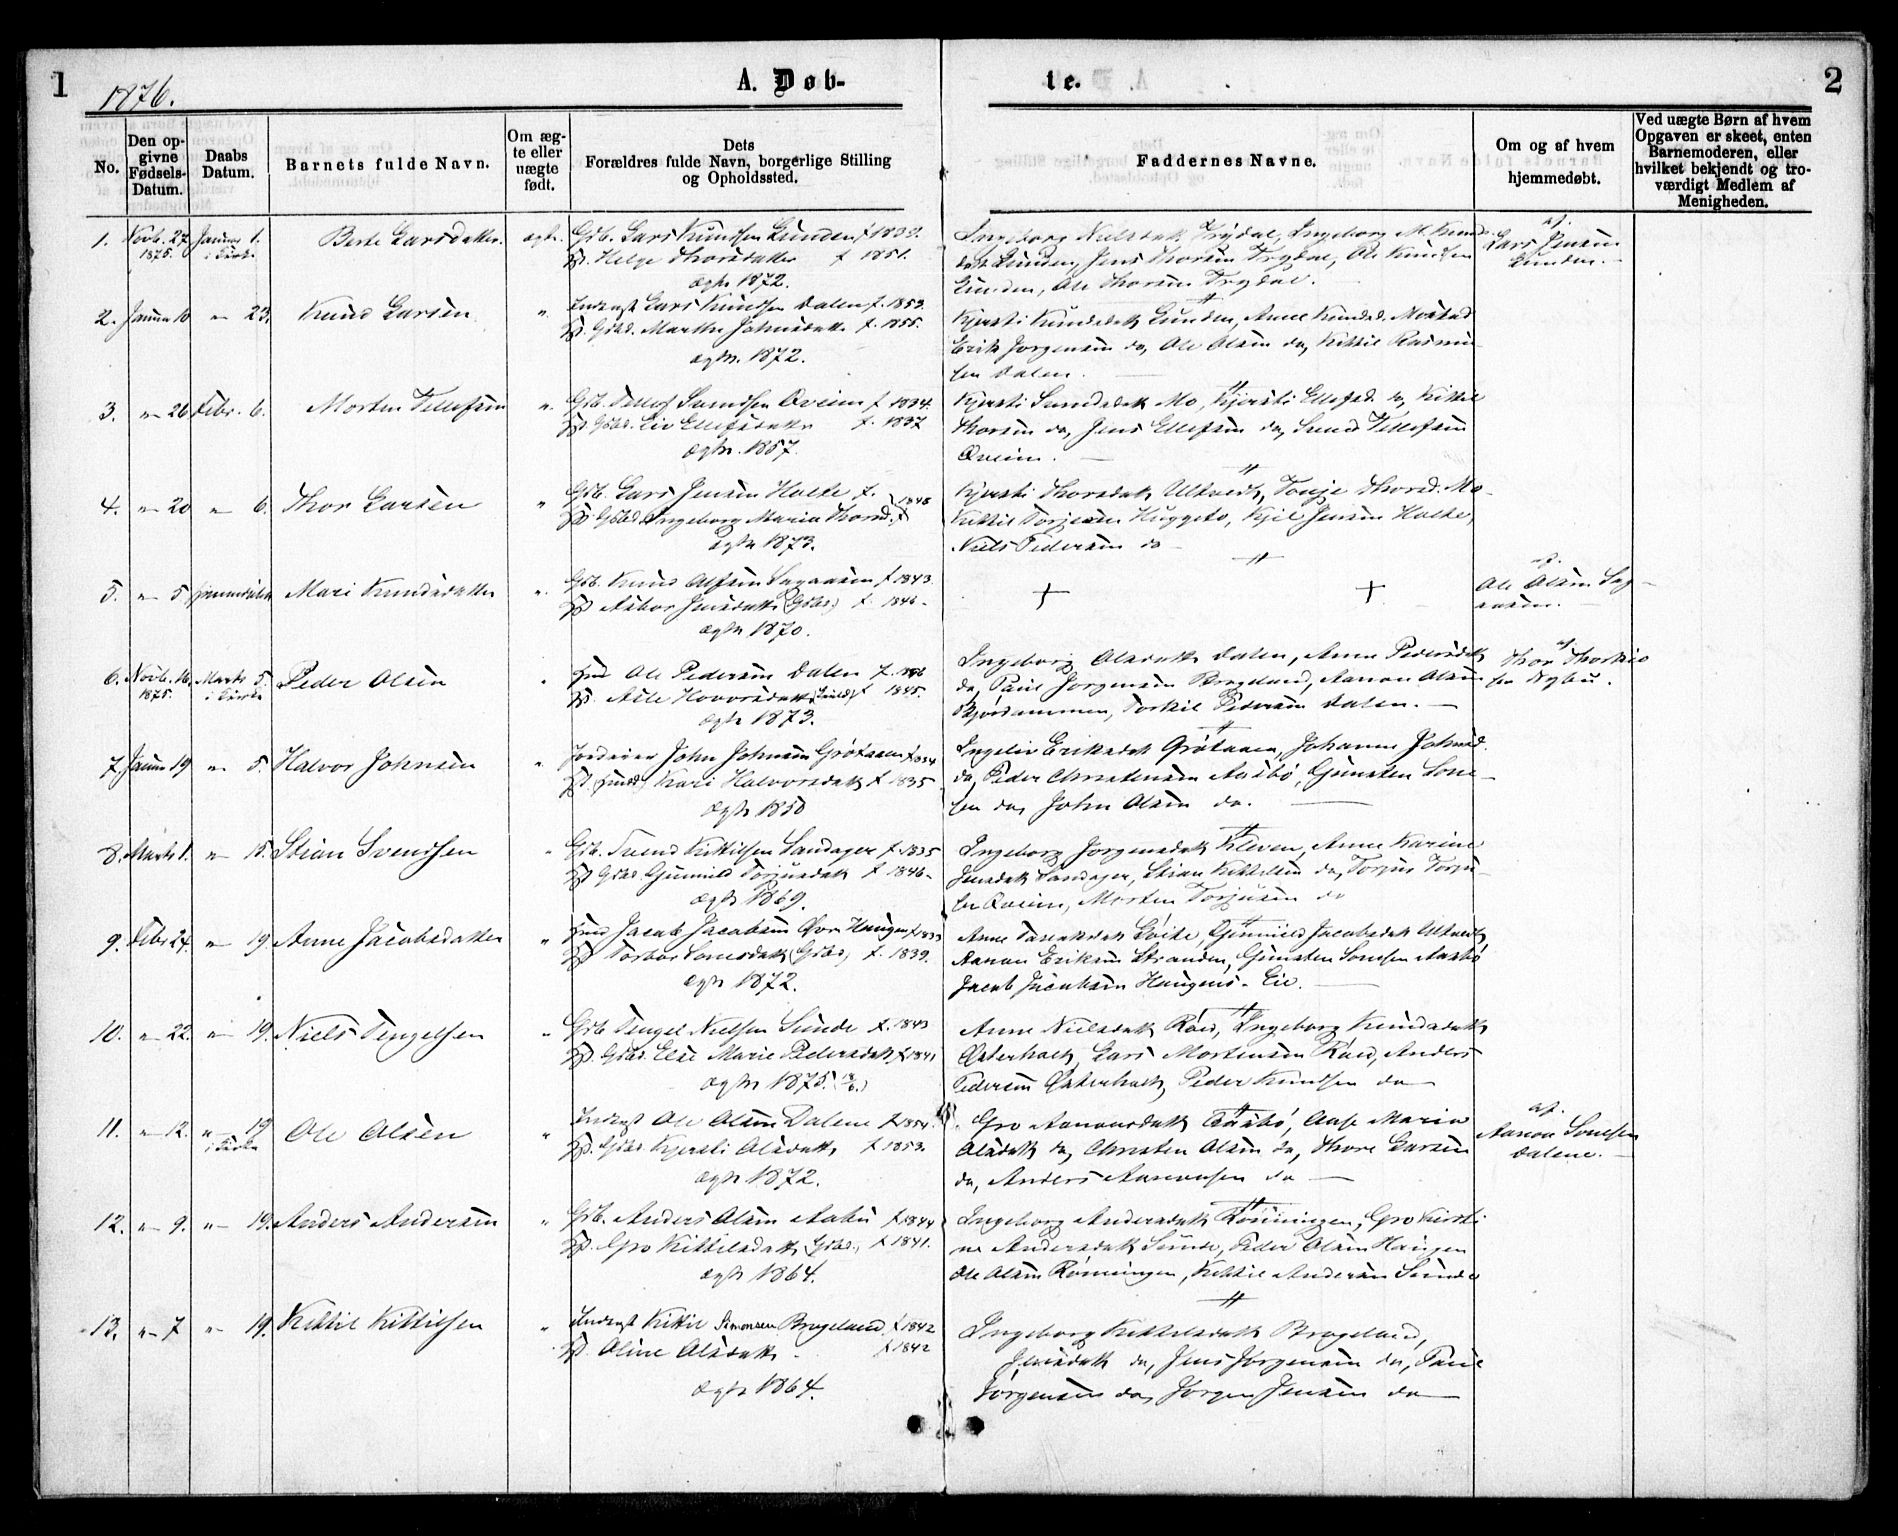 1
1876.
A. Døb-
te.
2
No.
Den opgivne Fødsels-Datum.
Daabs Datum.
Barnets fulde Navn.
Om ægte eller uægte født.
Dets Forældres fulde Navn, borgerlige Stilling og Opholdssted.
Faddernes Navne.
Om og af hvem hjemmedøbt.
Ved uægte Børn af hvem Opgaven er skeet, enten Barnemoderen, eller hvilket bekjendt og troværdigt Medlem af Menigheden.
1. Novb. 27 1875. Januar 1. i Kirke Berte Larsdatter. ægte.
Gdb. Lars Knudsen Lunden
Helge Thorsdatter f 1851.
ægtv. 1872.
Ingeborg Nielsdatt Trydal, Ingeborg M. Knuds-
datt Lunden, Jens Thorsen Trydal, Ole Knudsen
Lunden, Ole Thorsen Trydal.
af. Lars Jensen
Lunden.
2. Januar 10 " 23. Knud Larsen "
Inderst Lars Knudsen Dalen f. 1853.
Marthe Johnsdatt f. 1855.
ægtv. 1872.
Kjersti Knudsdatt Lunden, Anne Knudsd. Mostad
Erik Jørgensen do, Ole Olsen do, Kittil Rasmu-
sen Dalen.
3. " 26 Febr. 6. Morten Tellefsen "
Gdb. Tellef Svendsen Oveien f 1834.
Liv Ellefsdatter f. 1837
ægtv. 1857.
Kjersti Svendsdatt Mo, Kjersti Ellefsd. do, Kittil
Thorsen do, Jens Ellefsen do, Svend Tellefsen
Oveien.
4. " 20 " 6. Thor Larsen "
Gdb. Lars Jensen Holte f.
Ingeborg Maria Thorsd. f 1848
ægtv 1873.
Kjersti Thorsdatt Ultvedt, Tonje Thorsd. Mo
Kittil Torjesen Huggeto, Kjil Jensen Holte,
Niels Pedersen do
5. " 5 hjemmedøbt Mari Knudsdatter "
Gdb. Knud Olsen Sagaasen f 1843.
Asbor Jensdatt (Gdbs) f. 1846.
ægtv 1870.
af. Ole Olsen Sag-
aasen.
6. Novb. 16. 1875. Marts 5. i Kirke Peder Olsen "
Ole Pedersen Dalen
Asle Hovorsdatt f 1845.
ægtv 1873.
Ingeborg Olsdatt Dalen, Anne Pedersdatt
do, Paul Jørgensen Brageland, Aanon Olsen
Torkil Pedersen Dalen.
af Thor Thorkild-
sen Nybu.
7. Januar 19 " 5. Halvor Johnsen "
Jordeier John Johnsen Grøtaasen f 1834
Kari Halvorsdatt f 1835
ægtv 1858
Ingeliv Eriksdatt Grøtaasen, Johanne Johnsd.
do, Peder Christensen Aasbø, Gunsten Sone-
sen do, John Olsen do.
8. Marts 1. " 15. Stian Svendsen "
Gdb. Svend Kittilsen Sandager f 1835
Gunnild Torjusdatt f 1846
ægtv 1869.
Ingeborg Jørgensdatt Kleven, Anne Karine
Jensdatt Sandager, Stian Kittilsen do, Torjus Torju-
sen Oveien, Morten Torjusen do
9. Febr 24. " 19. Anne Jacobsdatter "
Jacob Jacobsen Øvre Haugen f. 1833
Torbor Sonesdatt (Gdbs) f. 1839.
ægtv 1872.
Gunnild Jacobsdatt Ultvedt,
Aanon Eriksen Stranden, Gunsten Sonesen Aasbø
Jacob Jacobsen Haugens-Eie.
10. " 22. " 19. Niels Tengelsen "
Gdb Tengel Nielsen Sunde f. 1843
Else Marie Pedersdatt f 1841
ægtv 1875.
Anne Nielsdatt Røed, Ingeborg Knudsdatt
Østerholt, Lars Mortensen Røed, Anders
Pedersen Østerholt, Peder Knudsen do
11. " 12. " 19 i Kirke Ole Olsen "
Inderst Ole Olsen Dalene f 1854.
Kjersti Olsdatt f 1853.
ægtv 1872.
Gro Aanonsdatt Aasbø, Aase Maria
Olsdatt do, Christen Olsen do, Thore Larsen
do, Anders Aanonsen do
af. Aanon Sonesen
Dalene.
12. " 9. " 19. Anders Andersen "
Gdb. Anders Olsen Aabu f 1844
Gro Kittilsdatt (Gdbs) f 1841.
ægtv 1864.
Ingeborg Andersdatt Rønningen, Gro Kirsti-
ne Andersdatt Sunde, Peder Olsen Haugen
Ole Olsen Rønningen, Kittil Andersen Sunde
13. " 7 " 19. Kittil Kittilsen "
Inderst Kittil Simonsen Brageland f 1842
Oline Olsdatt f 1842
ægtv 1864.
Ingeborg Kittilsdatt Brageland,
Jensdatt do, Jens Jørgensen do, Paul
Jørgensen do, Jørgen Jensen do